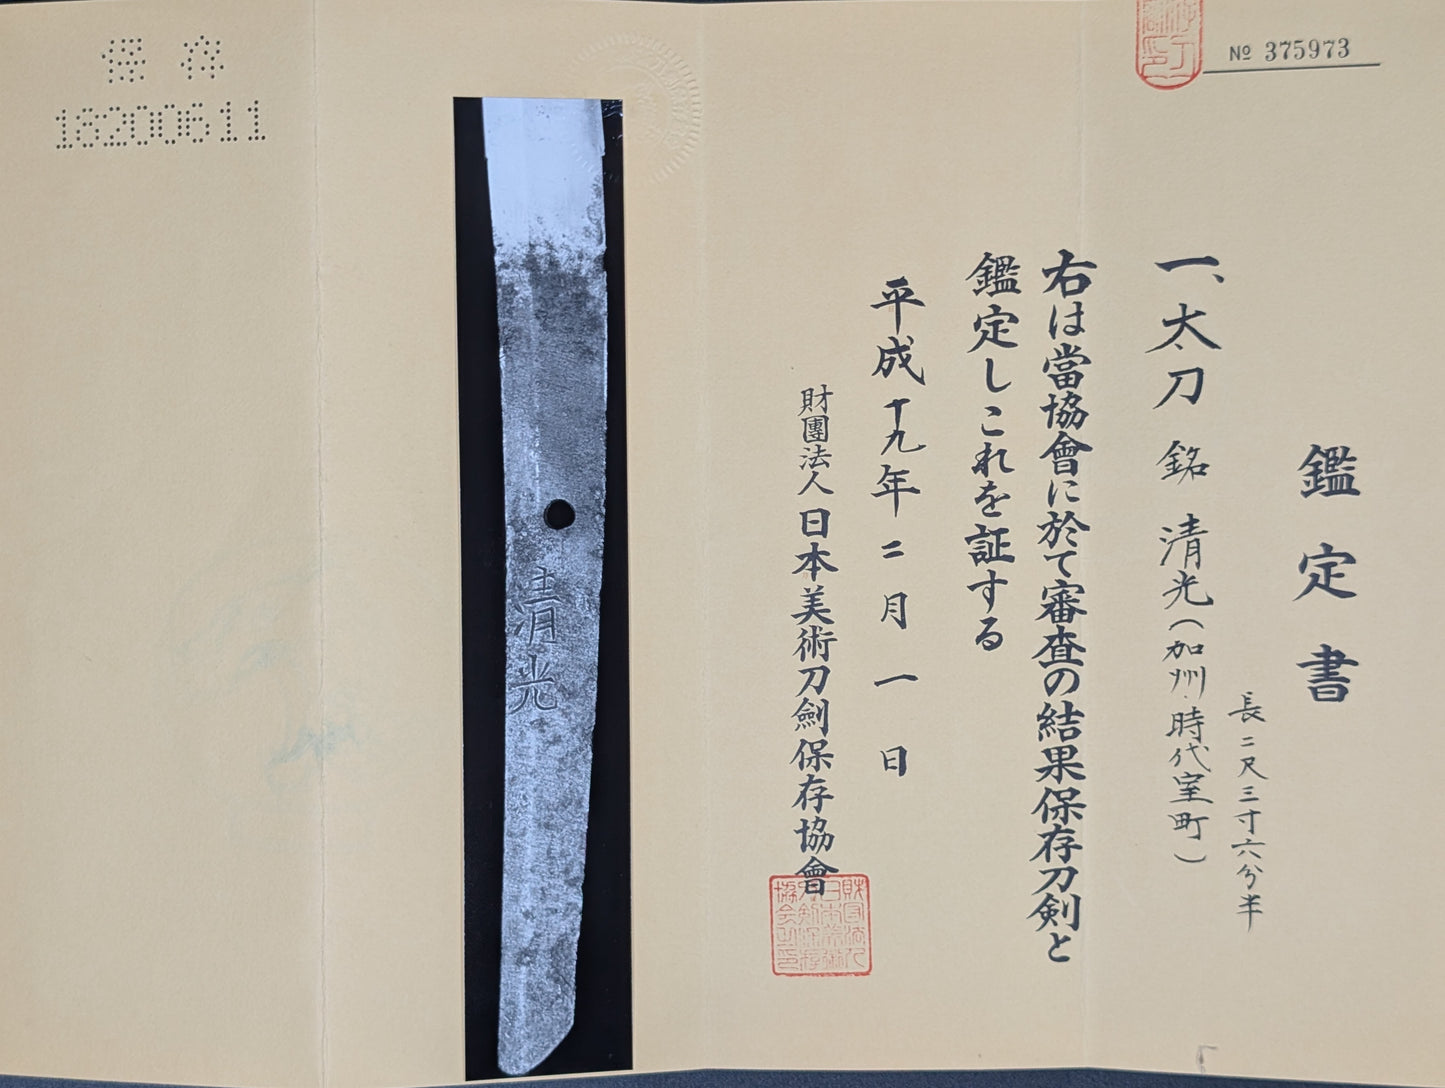 № 375973
鑑定書
一、太刀 銘 清光(加州・時代室町)
長二尺三寸六分半
右は當協會に於て審査の結果保存刀剣と
鑑定しこれを証する
平成十九年二月一日
財團法人日本美術刀劍保存協會
清光
保存
18200611